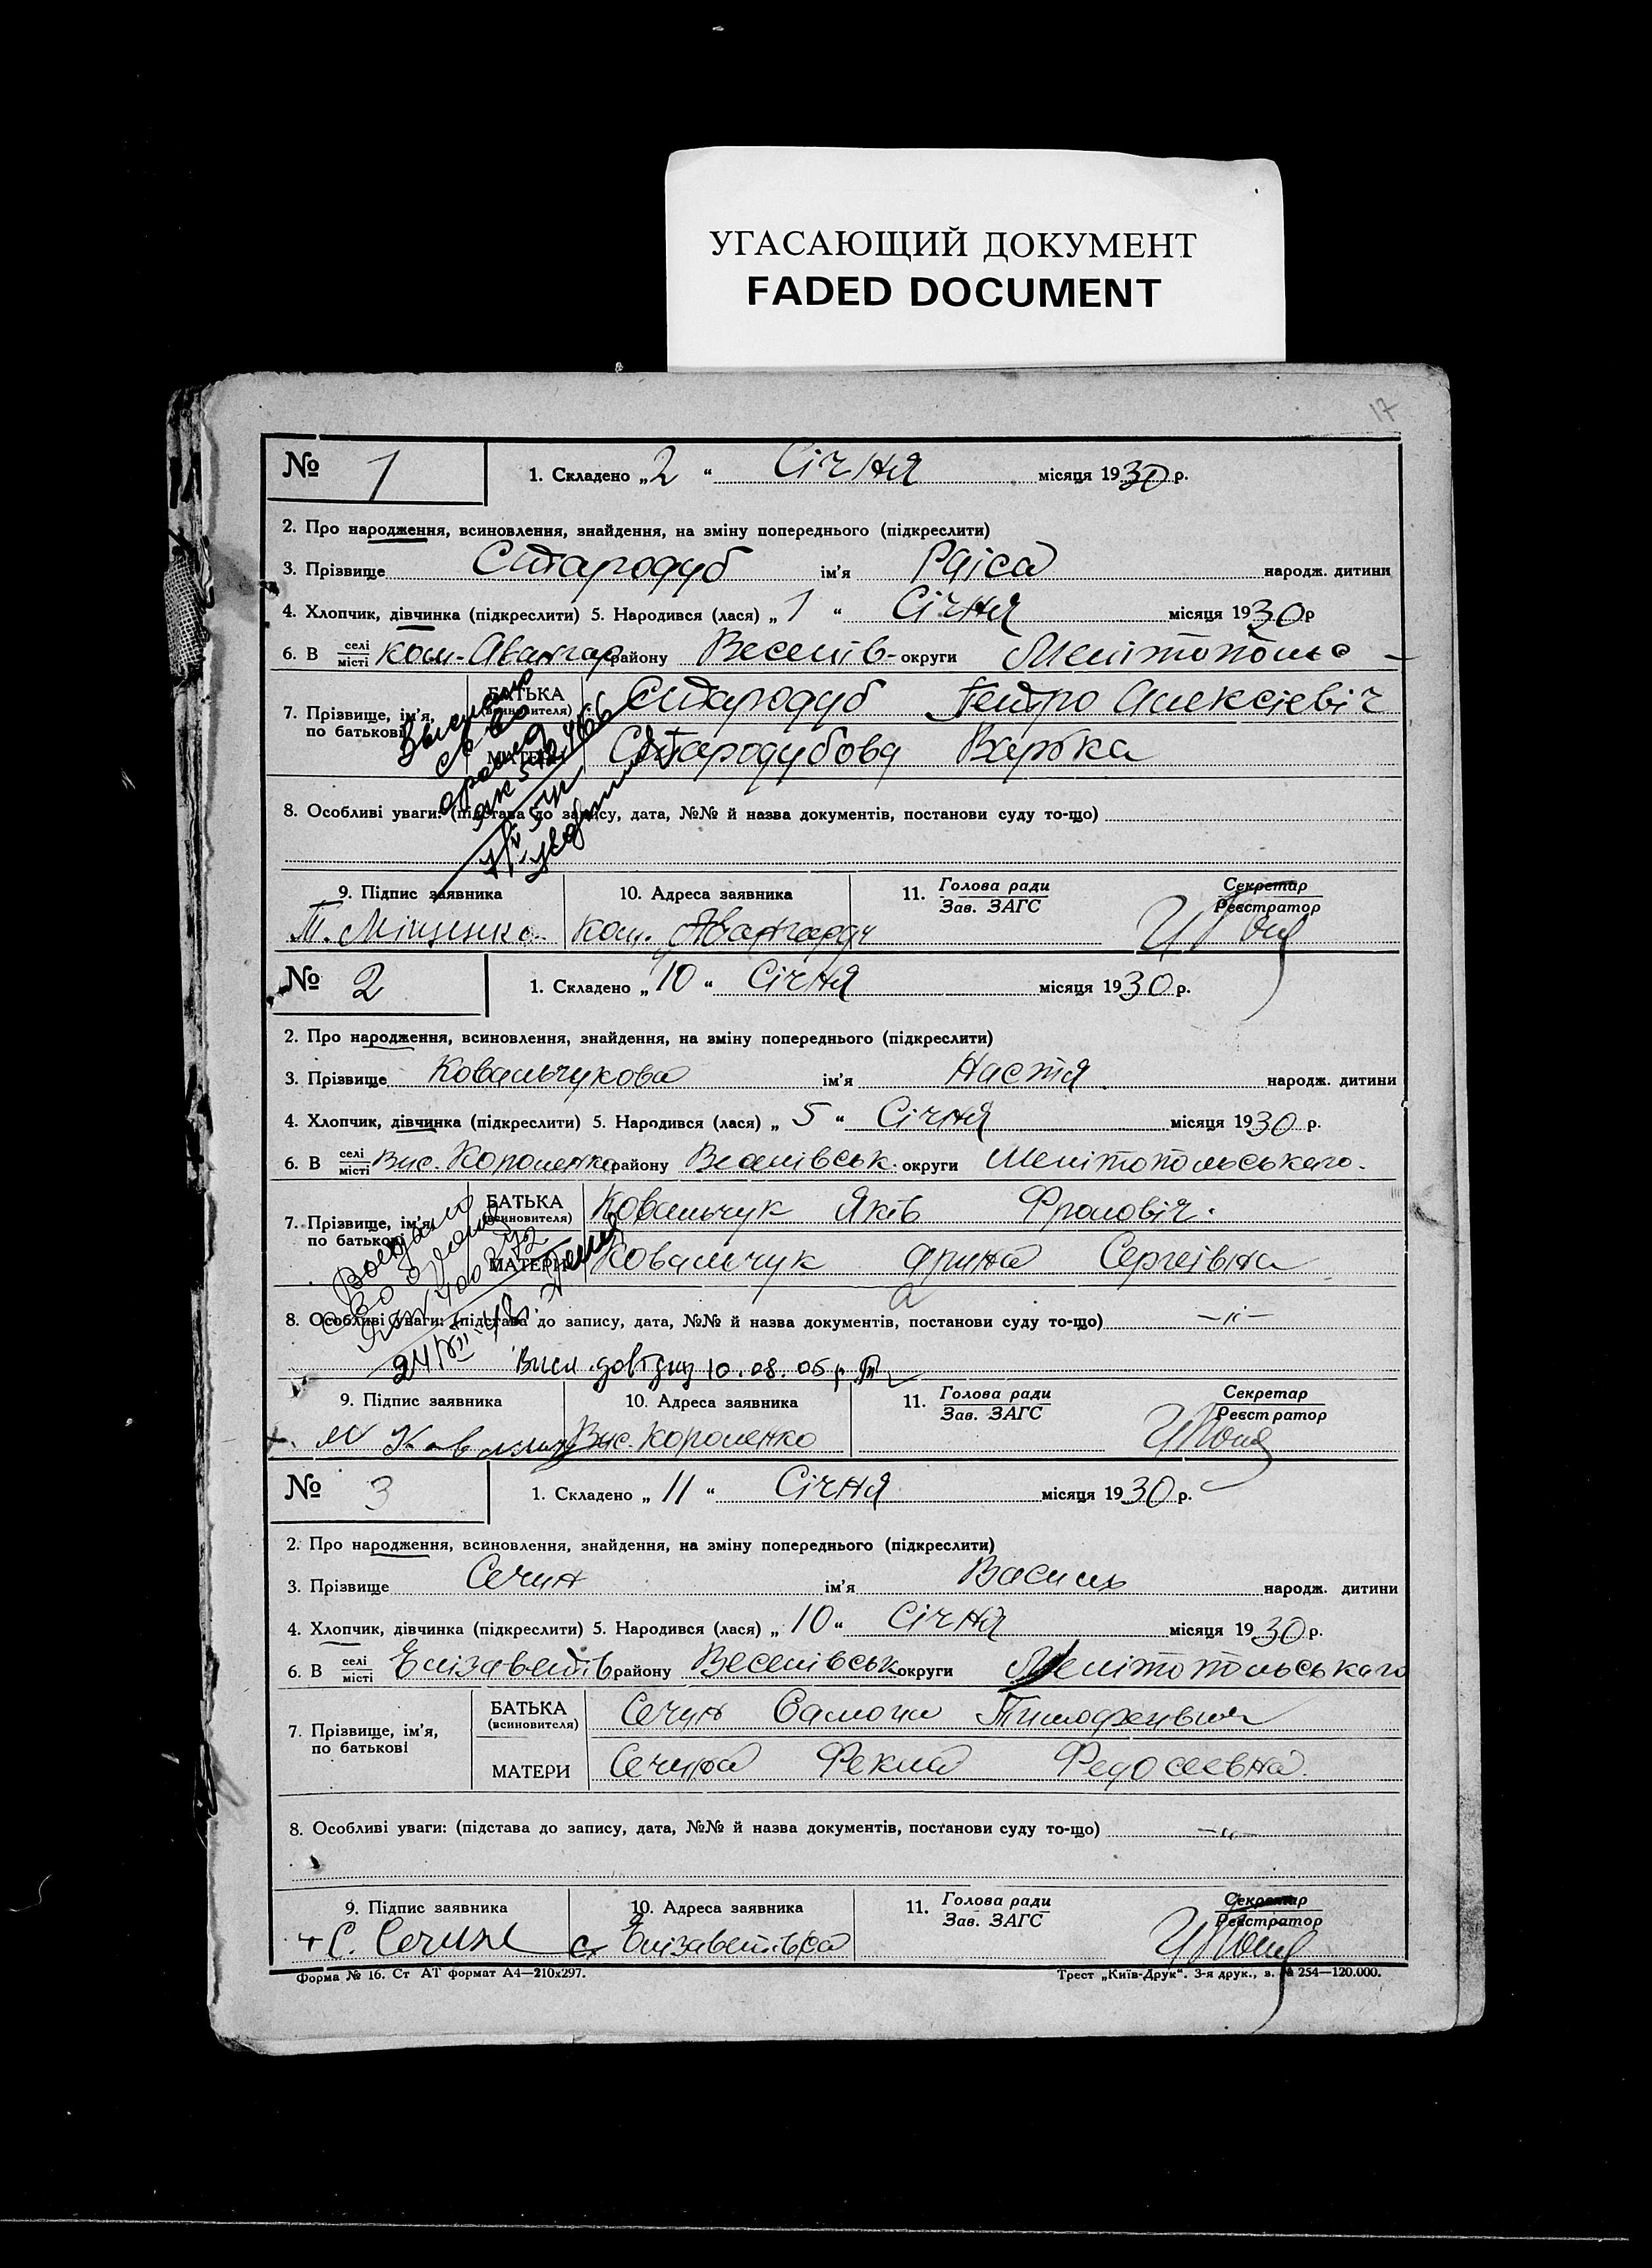 УГАСАЮЩИЙ ДОКУМЕНТ
FADED DOCUMENT
17
№ 1
1. Складено „2“ Січня місяця 1930 р.
2. Про народження, всиновлення, знайдення, на зміну попереднього (підкреслити)
3. Прізвище Стародуб ім’я Раїса народж. дитини
4. Хлопчик, дівчинка (підкреслити) 5. Народився (лася) „1“ Січня місяця 1930 р
6. В селі місті ком. Авангар району Веселів- округи Мелітопольс-
7. Прізвище, ім’я, по батькові
БАТЬКА (всиновителя) Стародуб Петро Алексієвіч
МАТЕРИ Стародубова Варька
8. Особливі уваги: (підстава до запису, дата, №№ й назва документів, постанови суду то-що)
9. Підпис заявника 10. Адреса заявника 11. Голова ради Зав. ЗАГС Секретар Реєстратор
Т. Міщенко ком. Авангард
№ 2
1. Складено „10“ Січня місяця 1930 р.
2. Про народження, всиновлення, знайдення, на зміну попереднього (підкреслити)
3. Прізвище Ковальчукова ім’я Настя народж. дитини
4. Хлопчик, дівчинка (підкреслити) 5. Народився (лася) „5“ Січня місяця 1930 р.
6. В селі місті Вис. Короленко району Веселівськ. округи Мелітопольського.
7. Прізвище, ім’я, по батькові
БАТЬКА (всиновителя) Ковальчук Яків Фролович.
МАТЕРИ Ковальчук Арина Сергеївна
8. Особливі уваги: (підстава до запису, дата, №№ й назва документів, постанови суду то-що) —〃—
10.08.05р
9. Підпис заявника 10. Адреса заявника 11. Голова ради Зав. ЗАГС Секретар Реєстратор
Вис. Короленко
№ 3
1. Складено „11“ Січня місяця 1930 р.
2. Про народження, всиновлення, знайдення, на зміну попереднього (підкреслити)
3. Прізвище Сечин ім’я Василь народж. дитини
4. Хлопчик, дівчинка (підкреслити) 5. Народився (лася) „10“ Січня місяця 1930 р.
6. В селі місті Єлізаветів району Веселівськ округи Мелітопольського
7. Прізвище, ім’я, по батькові
БАТЬКА (всиновителя) Сечин Самоил Тимофеевич
МАТЕРИ Сечина Фекла Федосеевна.
8. Особливі уваги: (підстава до запису, дата, №№ й назва документів, постанови суду то-що) —〃—
9. Підпис заявника 10. Адреса заявника 11. Голова ради Зав. ЗАГС Секретар Реєстратор
+ С. Сечин с. Єлізаветівка
Форма № 16. Ст АТ формат А4—210х297. Трест „Київ-Друк“. 3-я друк., з. № 254—120.000.